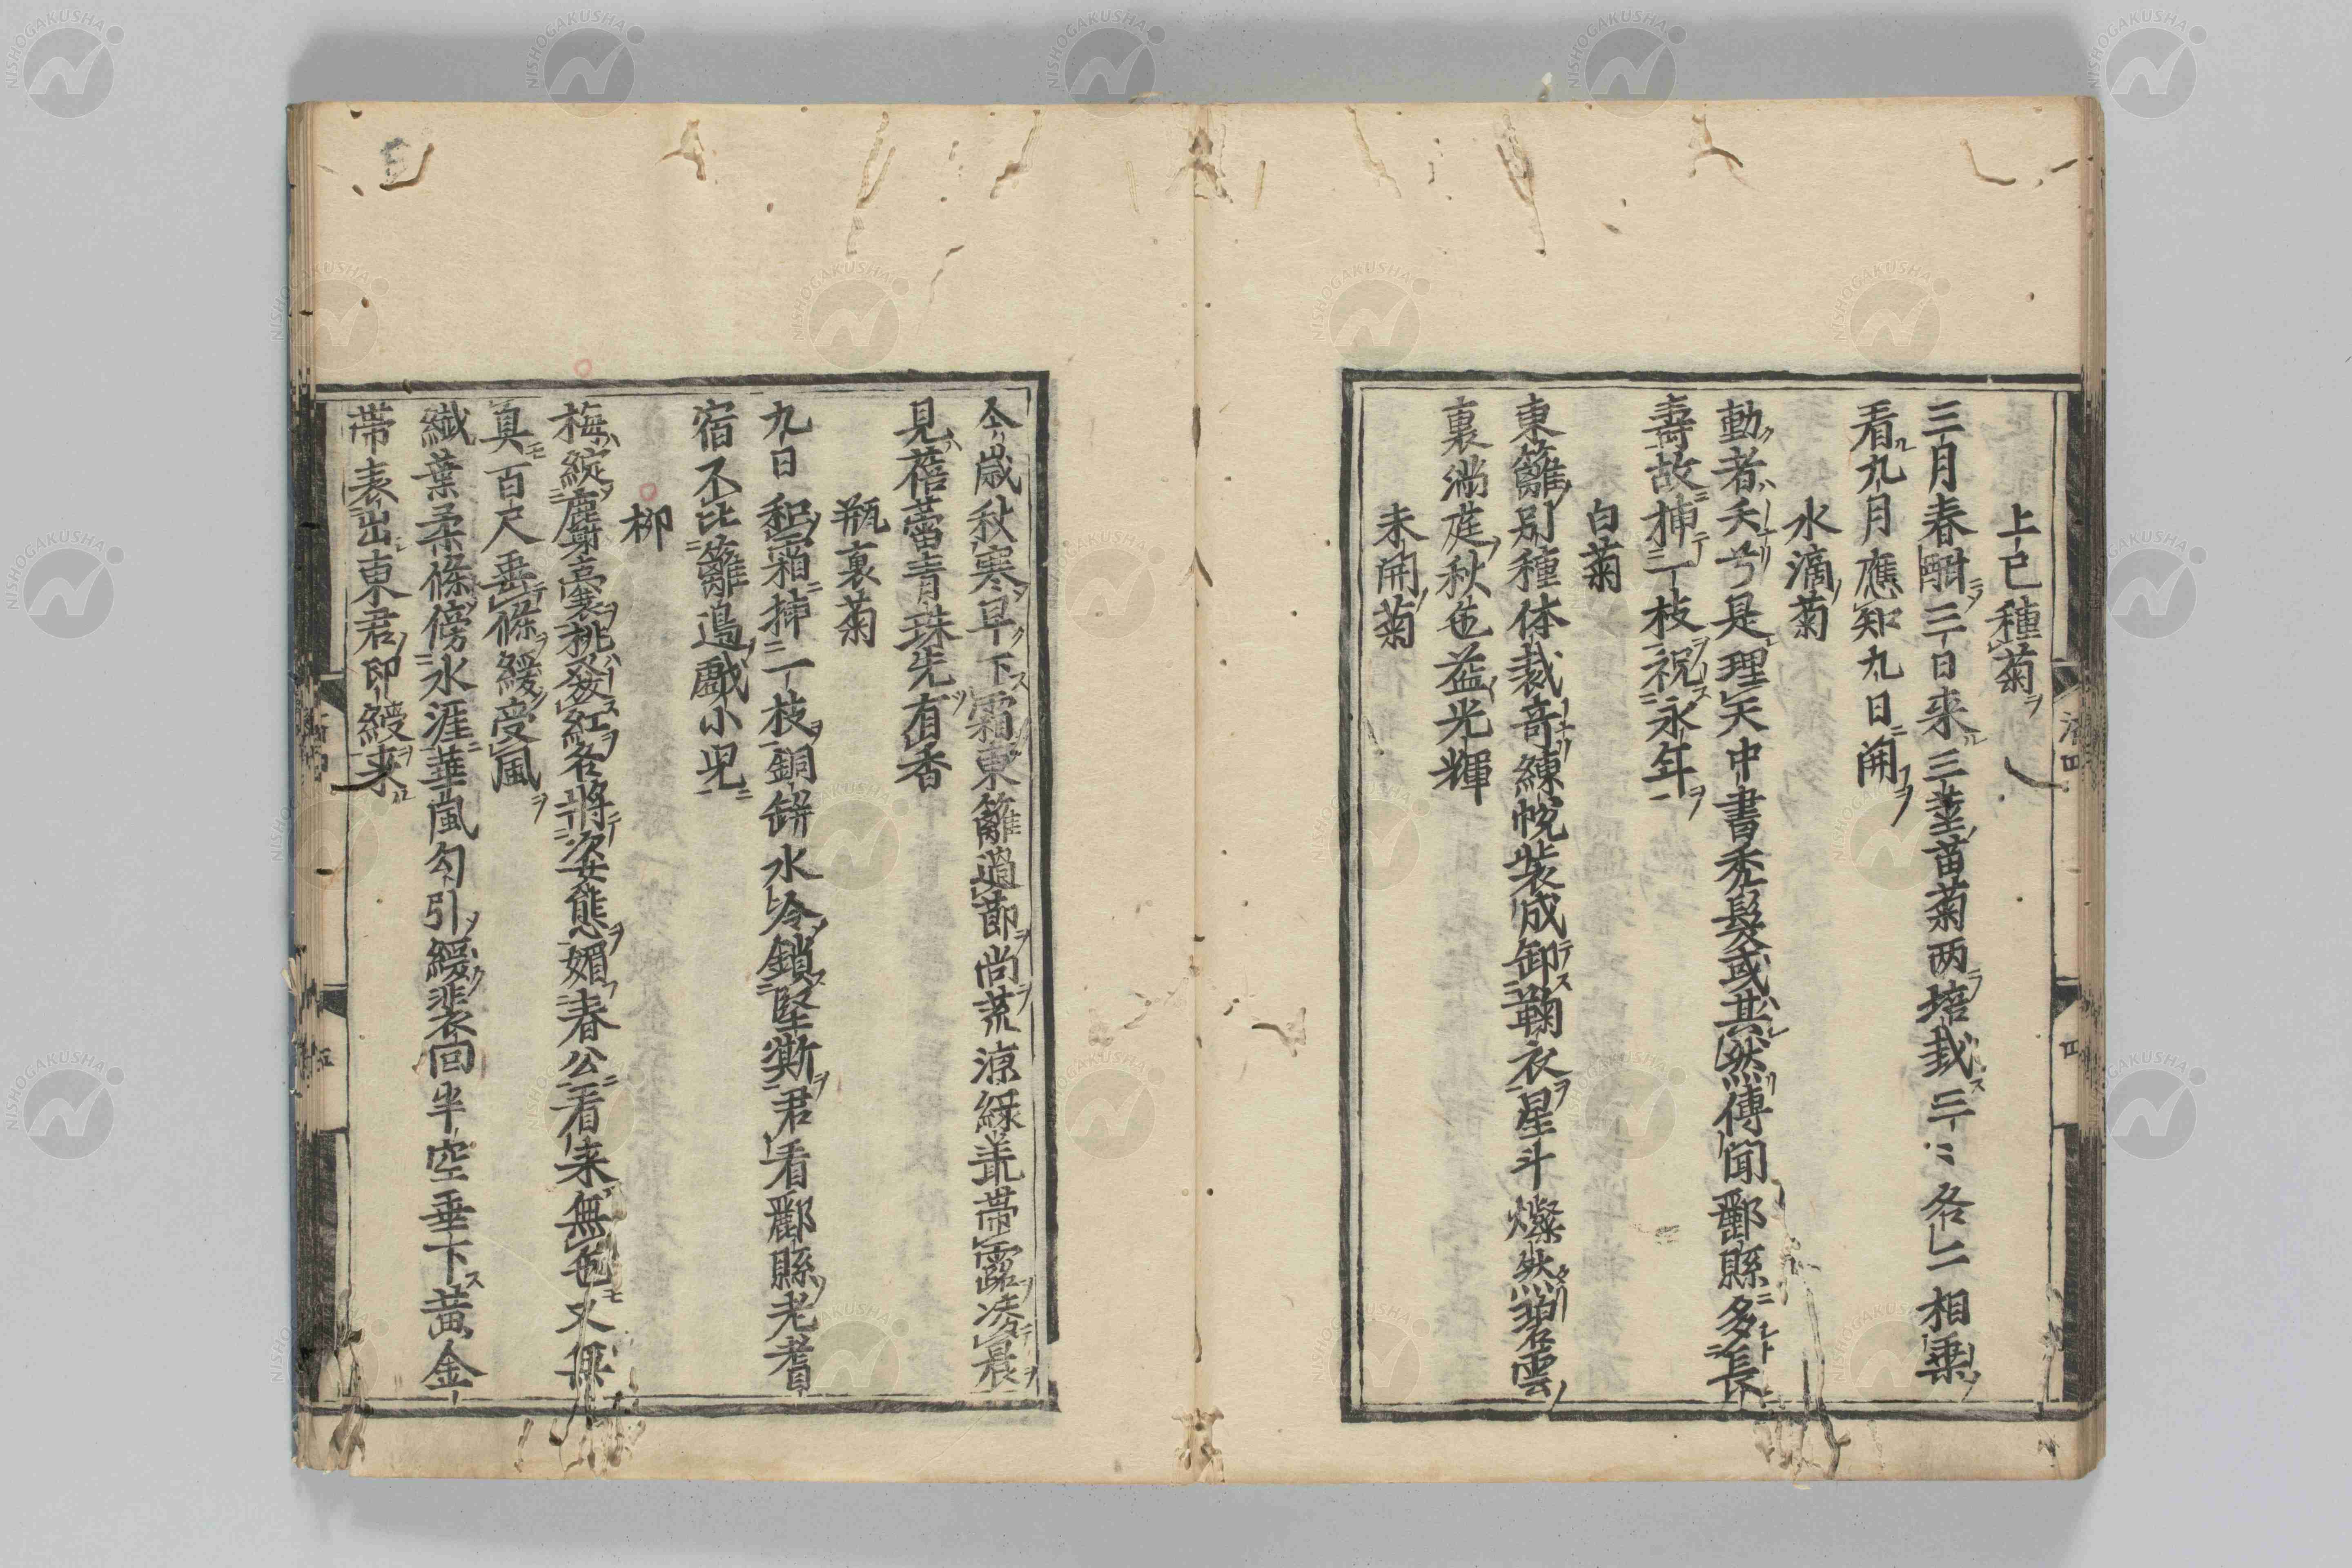 上巳種菊
三月春酣三日来三莖苗菊两培栽三〻各二相乗
看九月應知九日開
水滴菊
動者夭兮是理天中書禿髮或其然傳聞酈縣多長
壽故挿一枝祝永年
白菊
東籬別種体裁竒練帨裝成卸鞠衣星斗燦然碧雲
裏満庭秋色益光輝
未開菊
今歳秋寒早下霜東籬過節尚荒凉緑羌帯露凌晨
見蓓蕾青珠先有香
瓶裏菊
九日犯霜挿一枝銅缾水冷鎖堅澌君看酈縣老耆
宿不比籬邉戲小児
柳
梅綻麝嚢桃發紅各將姿態媚春公看来無色又無
真百尺垂條緩受風
纎葉柔條傍水涯華風勾引緩裴回半空垂下黄金
帯表出東君印綬来
NISHOGAKUSHA